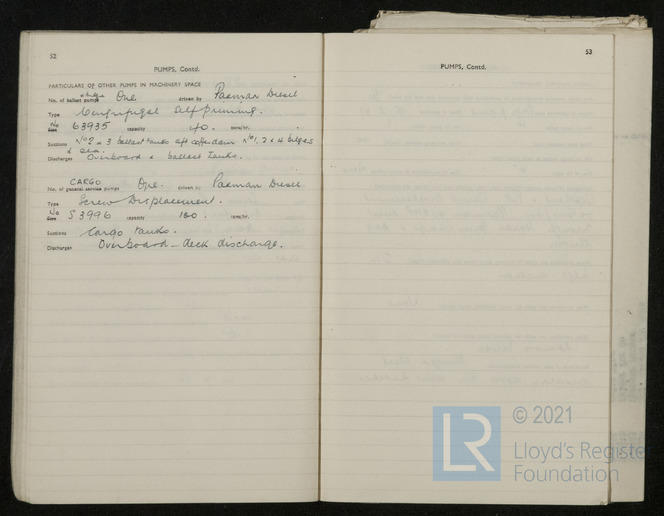 52
PUMPS, Contd.
PARTICULARS OF OTHER PUMPS IN MACHINERY SPACE
& bilge
No. of ballast pumps One driven by Paxman Diesel
Type Centrifugal Self priming.
No
Size 63935 capacity 40. tons/hr.
Suctions No 2 & 3 ballast tanks aft cofferdam No 1, 2 & 4 bilges
& sea.
Discharges Overboard & ballast tanks.
CARGO
No. of general service pumps One. driven by Paxman Diesel
Type Screw Displacement.
No
Size S 3996 capacity 100. tons/hr.
Suctions Cargo tanks.
Discharges Overboard - deck discharge.
53
PUMPS, Contd.
© 2021
LR
Lloyd's Register
Foundation